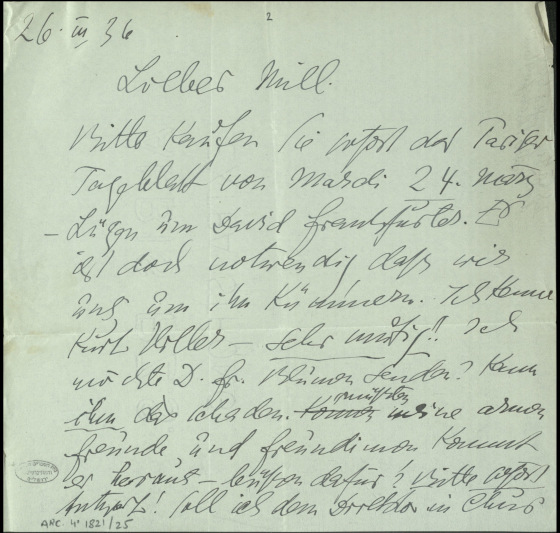 2
26. III 36
Lieber Mill.
Bitte kaufen Sie sofort das Pariser
Tageblatt von Mardi 24. März
– Lügen um David Frankfurter. Es
ist doch notwendig daß wir
uns um ihn kümmern. Ich kenne
Kurt Hiller – sehr mutig!! Ich
möchte D. Fr. Blumen senden? Kann
ihm das schaden. müßten meine armen
Freunde und Freundinnen kommt
es heraus – büßen dafür? Bitte sofort
Antwort! Soll ich dem Direktor in Chur
ARC. 4° 1821/25